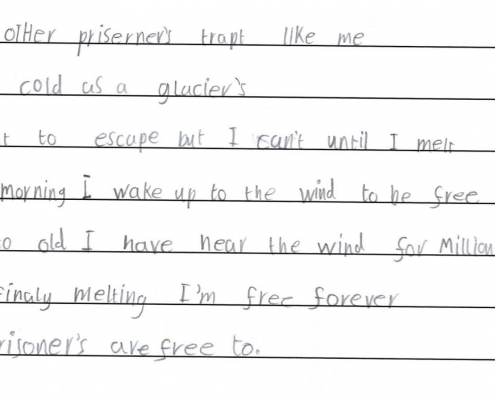 other priserner's trapt like me
cold as a glacier's
t to escape but I can't until I melt
morning I wake up to the wind to be free
o old I have hear the wind for Million
finaly melting I'm free forever
risoner's are free to.